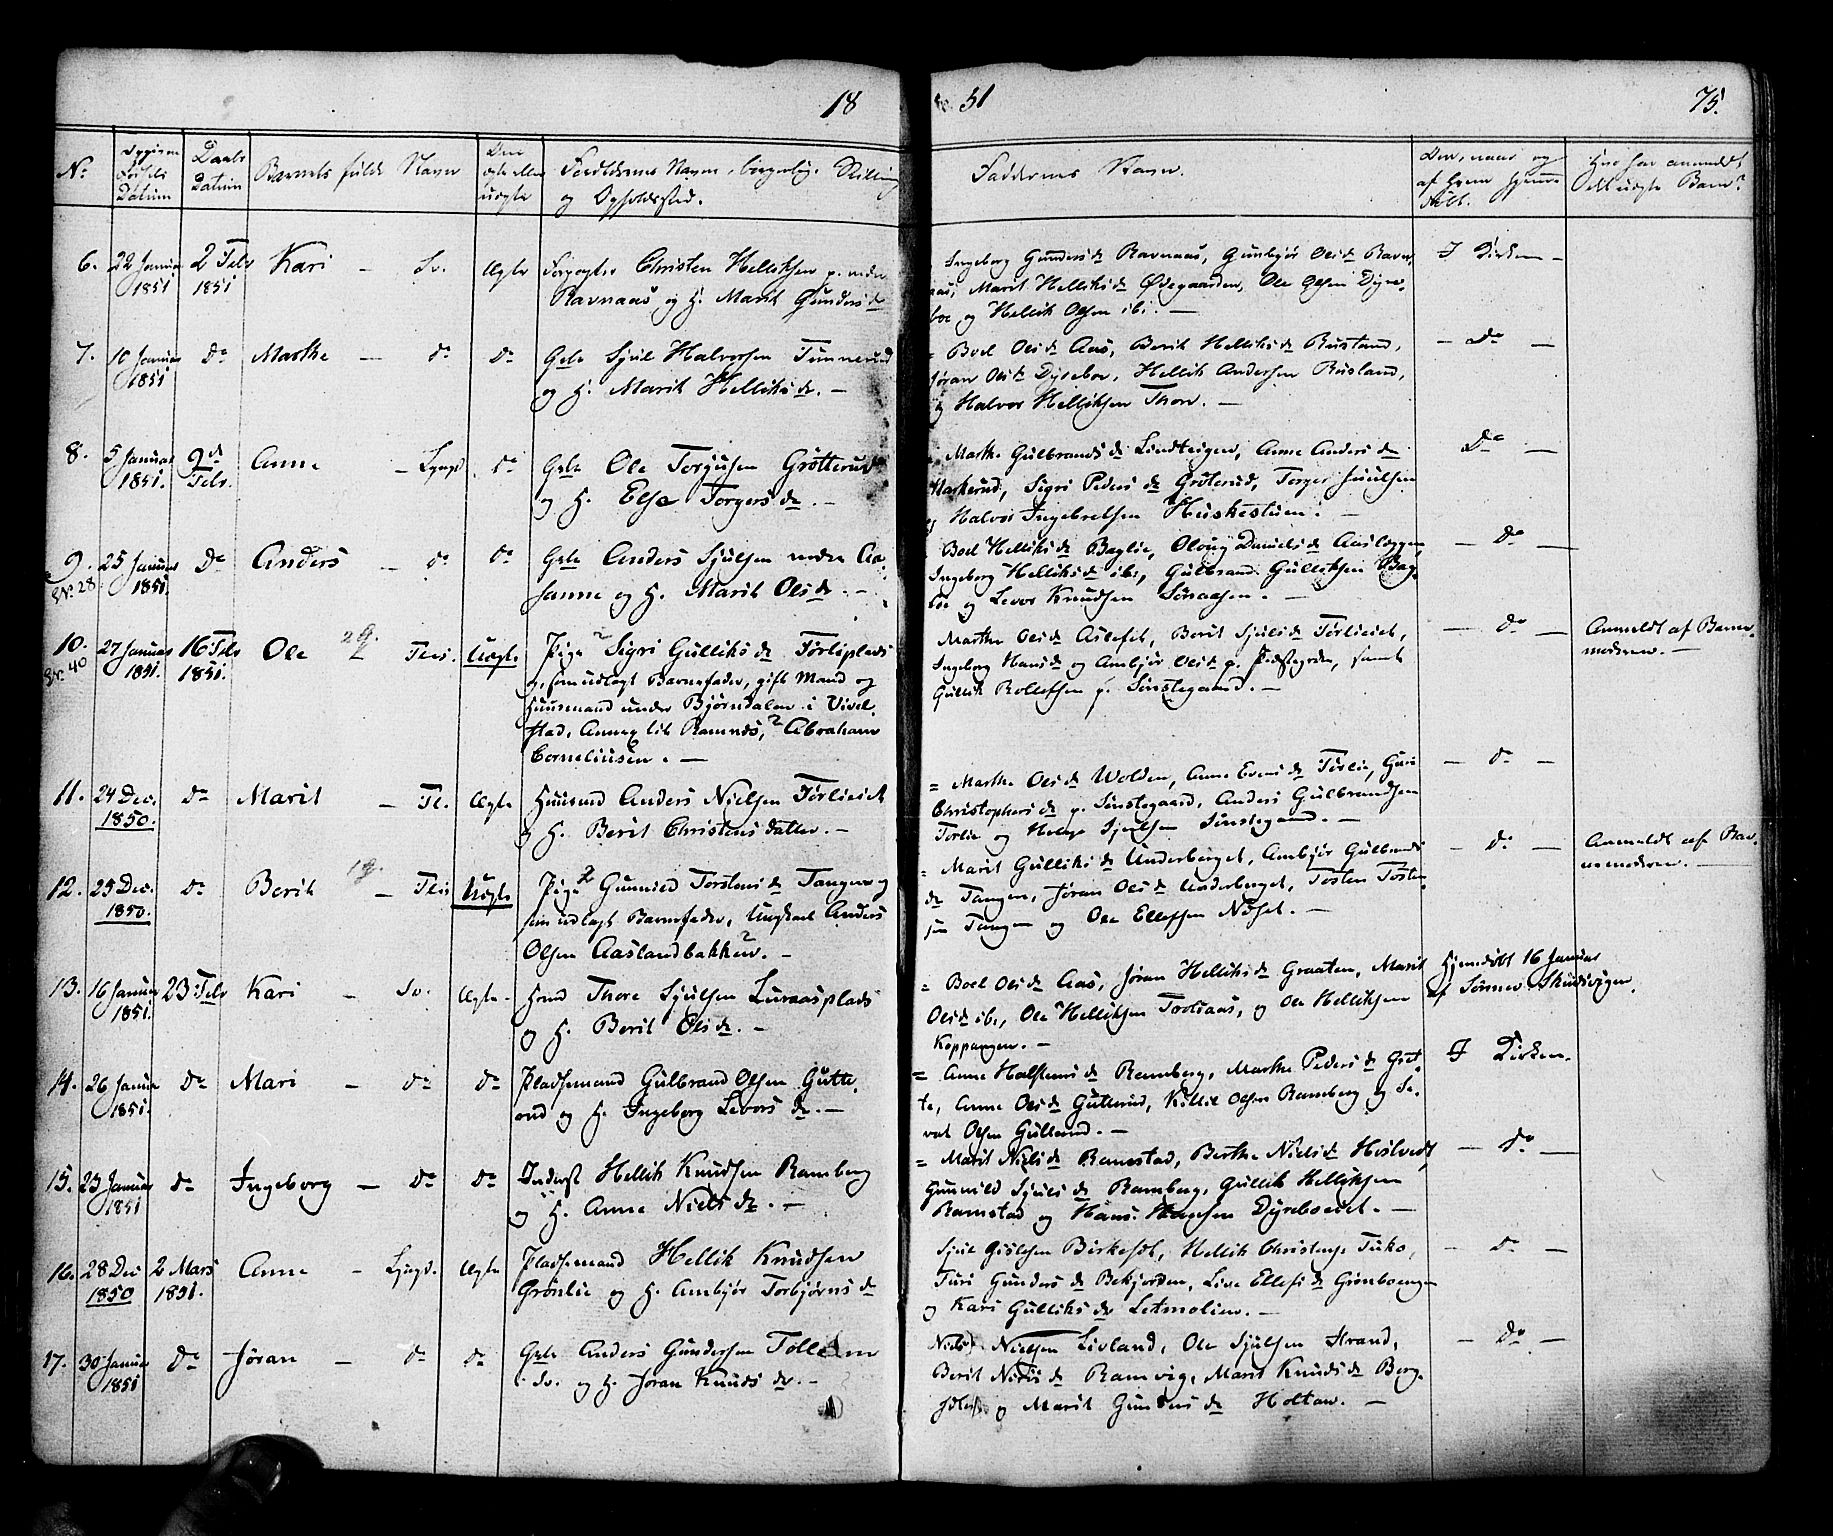 18
51
75.
No
Daabs Datum
Barnets fulde Navn
Forældrenes Navn, borgerlig. Stilling
og Opholdssted.
Faddernes Navn.
6. 22 Januar 1851 2 Febr 1851 Kari — Sv. Ægte Christen Helliksen p. nedre
Ravnaas og H. Marit Gundersdr
Ingeborg Gundersdr Ravnaas, Gunbjør Olsdr Ravn
aas, Marit Helliksdr Ødegaarden, Ole Olsen Dyre-
boe og Hellik Olsen ibi. —
I Kirken —
7. 10 Januar 1851 Do Marthe — do Do Gbr Sjul Halvorsen Tinnerud
og H. Marit Helliksdr. —
= Boel Olsdr Aas, Berit Helliksdr Rustand,
Jøran Olsdr Dyreboe, Hellik Andersen Rusland,
og Halvor Helliksen Thon. —
— Do —
8. 5 Januar 1851. 9d Febr. Anne — Lyngd. do Gbr Ole Torgusen Grøtterud
og H. Else Torgersdr. —
Marthe Gulbrandsdr Lindteigen, Anne Andersdr
Sigri Pedersdr Grøterud, Torger Juulsen
og Halvor Ingebretsen Huskestuen. —
Do —
9. No 28 25 Januar 1851. Do Anders — do do Gbr Anders Sjulsen nedre Aa-
sanne og H. Marit Olsdr. —
Boel Helliksdr Baglie, Oloug Danielsdr Aaslæggen,
Ingeborg Helliksdr ibi, Gulbrand Gulliksen Bag-
lie og Levor Knudsen —
— Do —
10. No 40 27 Januar 1851. 16 Febr 1851. Ole 2 g. Fles. Uægte Pige Sigri Gulliksdr Tørlieplads
og, som udlagt Barnefader, gift Mand og
Huusmand under Bjørndalen i Vivel-
stad, Annex til Ramnes, Abraham
Corneliusen. —
Marthe Olsdr Aslefet, Berit Sjulsdr Tørlieiet,
Ingeborg Hansdr og Ambjør Olsdr p. samt
Gullik Rollefsen p. Sønstegaard. —
— do —
Anmeldt af Barne-
moderen. —
11. 24 Dec. 1850. do Marit — Fl. Ægte Huusmd Anders Nielsen Tørlieiet
og H. Berit Christensdatter. —
= Marthe Olsdr Wolden, Anne Evensdr Tørlie, Guri
Christophersdr p. Sønstegaard, Anders Gulbrandsen
Tørlie og Helge Sjulsen Sønstegaard. —
— do —
12. 25 Dec. 1850. do Berit 1 g. — Fles Uægte Pige Gunnild Torstensdr Tangen og
som udlagt Barnefader, Ungkarl Anders
Olsen Aaslandbakken. —
= Marit Gulliksdr Underberget, Ambjør Gulbrands
dr Tangen, Jøran Olsdr Underberget, Tosten Tosten-
sen Tangen og Ole Ellefsen Næset. —
— do —
Anmeldt af Bar-
nemoderen. —
13. 16 Januar 1851. 23 Febr Kari — Sv. Ægte. Hmd Thore Sjulsen Luraasplads
og H. Berit Olsdr. —
= Boel Olsdr Aas, Jøran Helliksdr Graaten, Marit
Olsdr ibi, Ole Helliksen Trolsaas, og Ole Helliksen
Koppangen. —
Hjemdøbt 16 Januar
af
14. 26 Januar 1851. do Mari — do do Pladsemand Gulbrand Olsen Gutte-
rud og H. Ingeborg Levorsdr. —
= Anne Halstensdr Ramberg, Marthe Pedersdr Gret-
te, Anne Olsdr Gutterud, Kittil Olsen Ramberg og Se-
vat Olsen —
I Kirken.
15. 23 Januar 1851 do Ingeborg — do do Inderst Hellik Knudsen Ramberg
og H. Anne Nielsdr. —
= Marit Nielsdr Ramstad, Berthe Nielsdr Hestvedt,
Gunnild Sjulsdr Ramberg, Gullik Helliksen
Ramstad og Hans Hansen Dyreboeiet. —
— do —
16. 28 Dec 1850 2 Mars 1851. Anne — Lyngd. Ægte Pladsemand Hellik Knudsen
Grønlie og H. Ambjør Torbjørnsdr
Sjul Gislesen Birkesæt, Hellik Christense Tuko,
Turi Gundersdr Bekjorden, Live Ellefsdr
og Kari Gulliksdr Letmolien. —
— do —
17. 30 Januar 1851 Do Jøran — do do Gbr Anders Gundersen
i Sv. og H. Jøran Knudsdr. —
Niels Nielsen Livland, Ole Sjulsen Strand,
Berit Nielsdr Ramvig, Marit Knudsdr Berg-
og Marit Gundersdr Holtan. —
— Do —